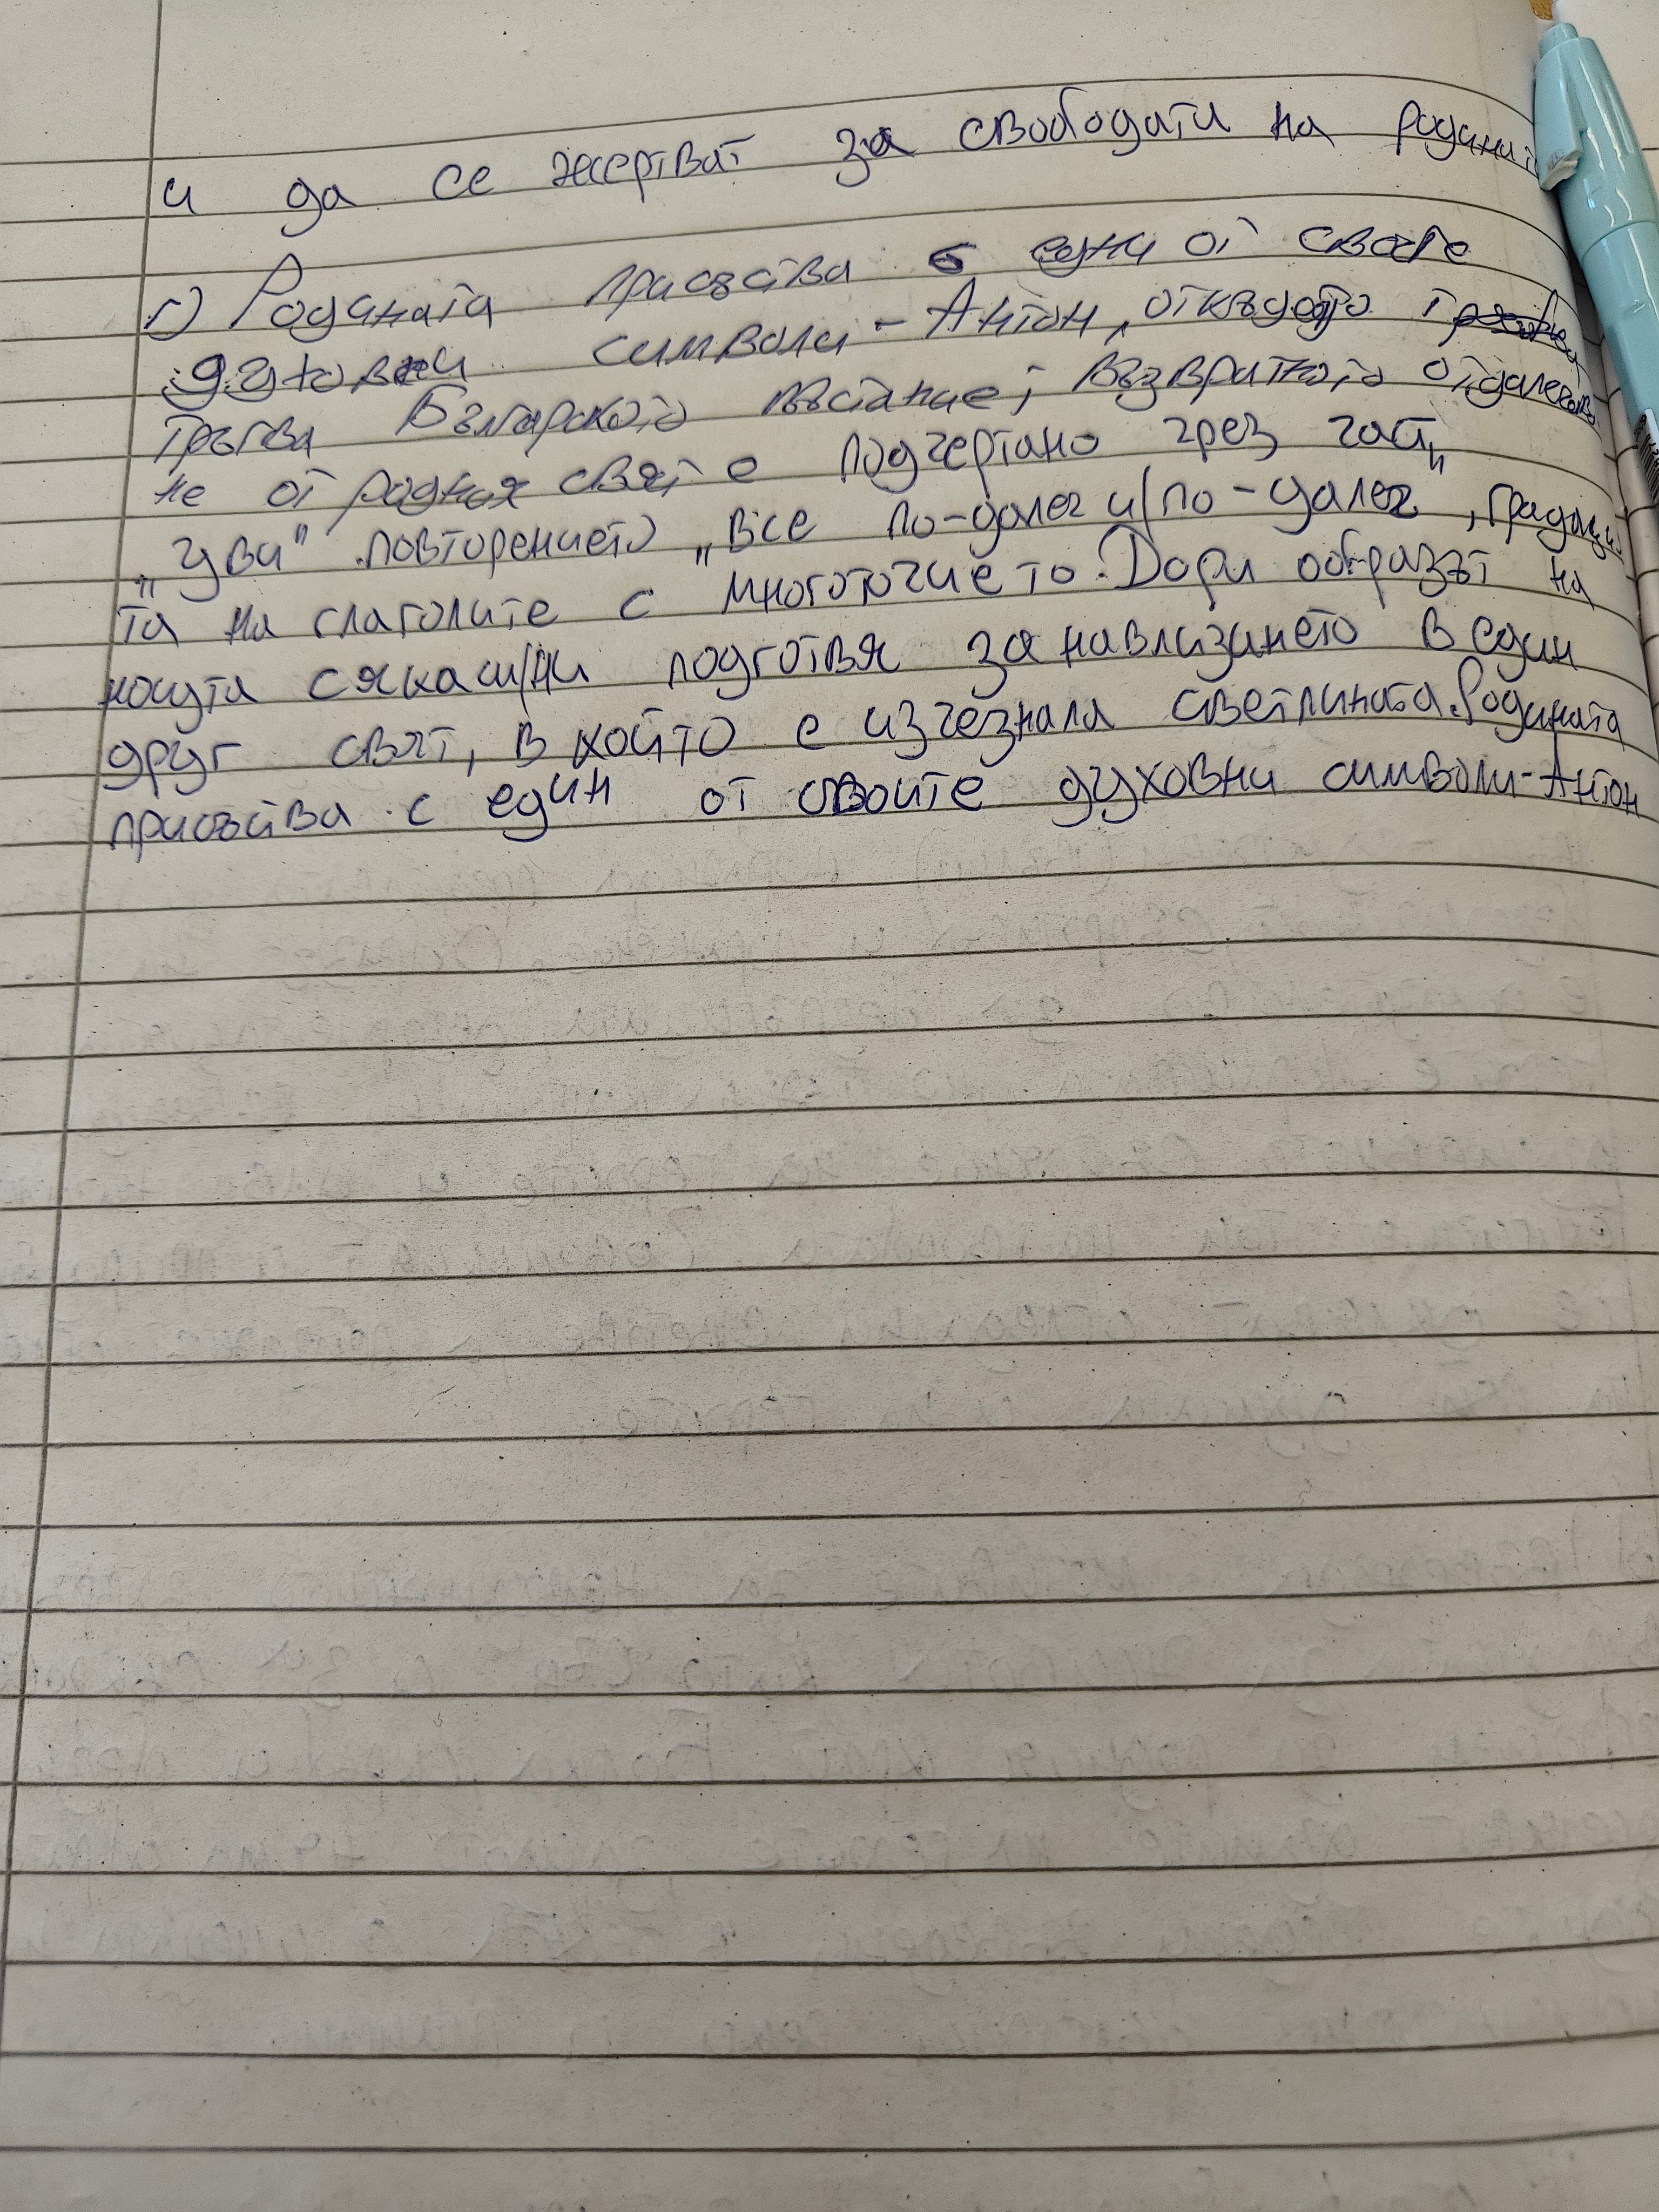 и да се жертват за свободата на родинат
г) Родината присъства с един от своите
духовни символи - Антон, откъдето
тръгва Българското въстание; възвратното отдалечава
не от родния свят е подчертано чрез част.
"уви" повторението "все по-далеч и/по-далеч", градаци
та на глаголите с многоточието. Дори образът на
нощта сякаш/ни подготвя за навлизането в един
друг свят, в който е изчезнала светлината. Родината
присъства с един от своите духовни символи - Антон